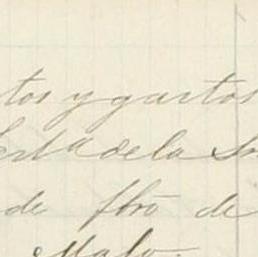 tos y gastos
de la
de fbro de
Malo.